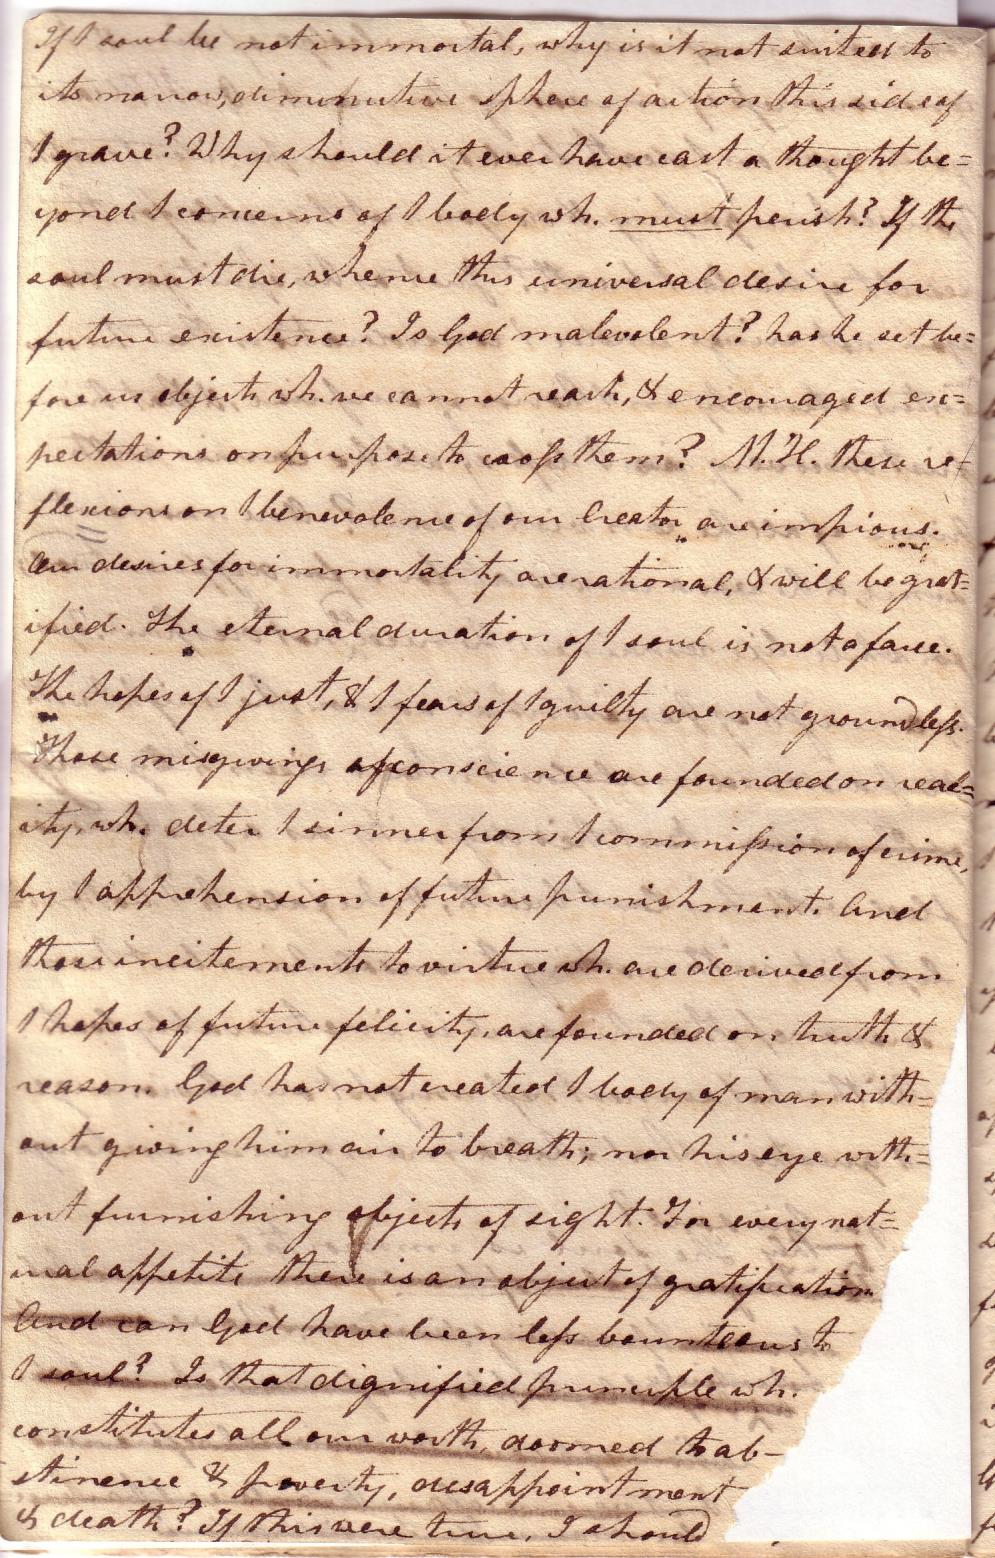 If I soul be not immortal, why is it not suited to
its narrow, diminutive sphere of action this side of
I grave? Why should it ever have cast a thought be=
yond I concerns of I body wh. must perish? If the
soul must die, whence this universal desire for
future existence? Is God malevolent? has he set be=
fore us objects wh. we cannot reach, & encouraged ex=
pectations on purpose to cross them? M.H. these re=
flexions on I benevolence of our Creator are impious.
Our desires for immortality are rational, & will be grat=
ified. The eternal duration of I soul is not a farce.
The hopes of I just, & I fears of I guilty are not groundless.
Those misgivings of conscience are founded on real=
ity, wh. deter I sinner from I commission of crime,
by I apprehension of future punishment. And
those incitements to virtue wh. are derived from
I hopes of future felicity, are founded on truth &
reason. God has not created I body of man with=
out giving him air to breath; nor his eye with=
out furnishing objects of sight. For every nat=
ural appetite there is an object of gratification
And can God have been less bounteous to
I soul? Is that dignified principle wh.
constitutes all our worth, doomed to ab-
stinence & poverty, disappointment
& death? If this were true, I should